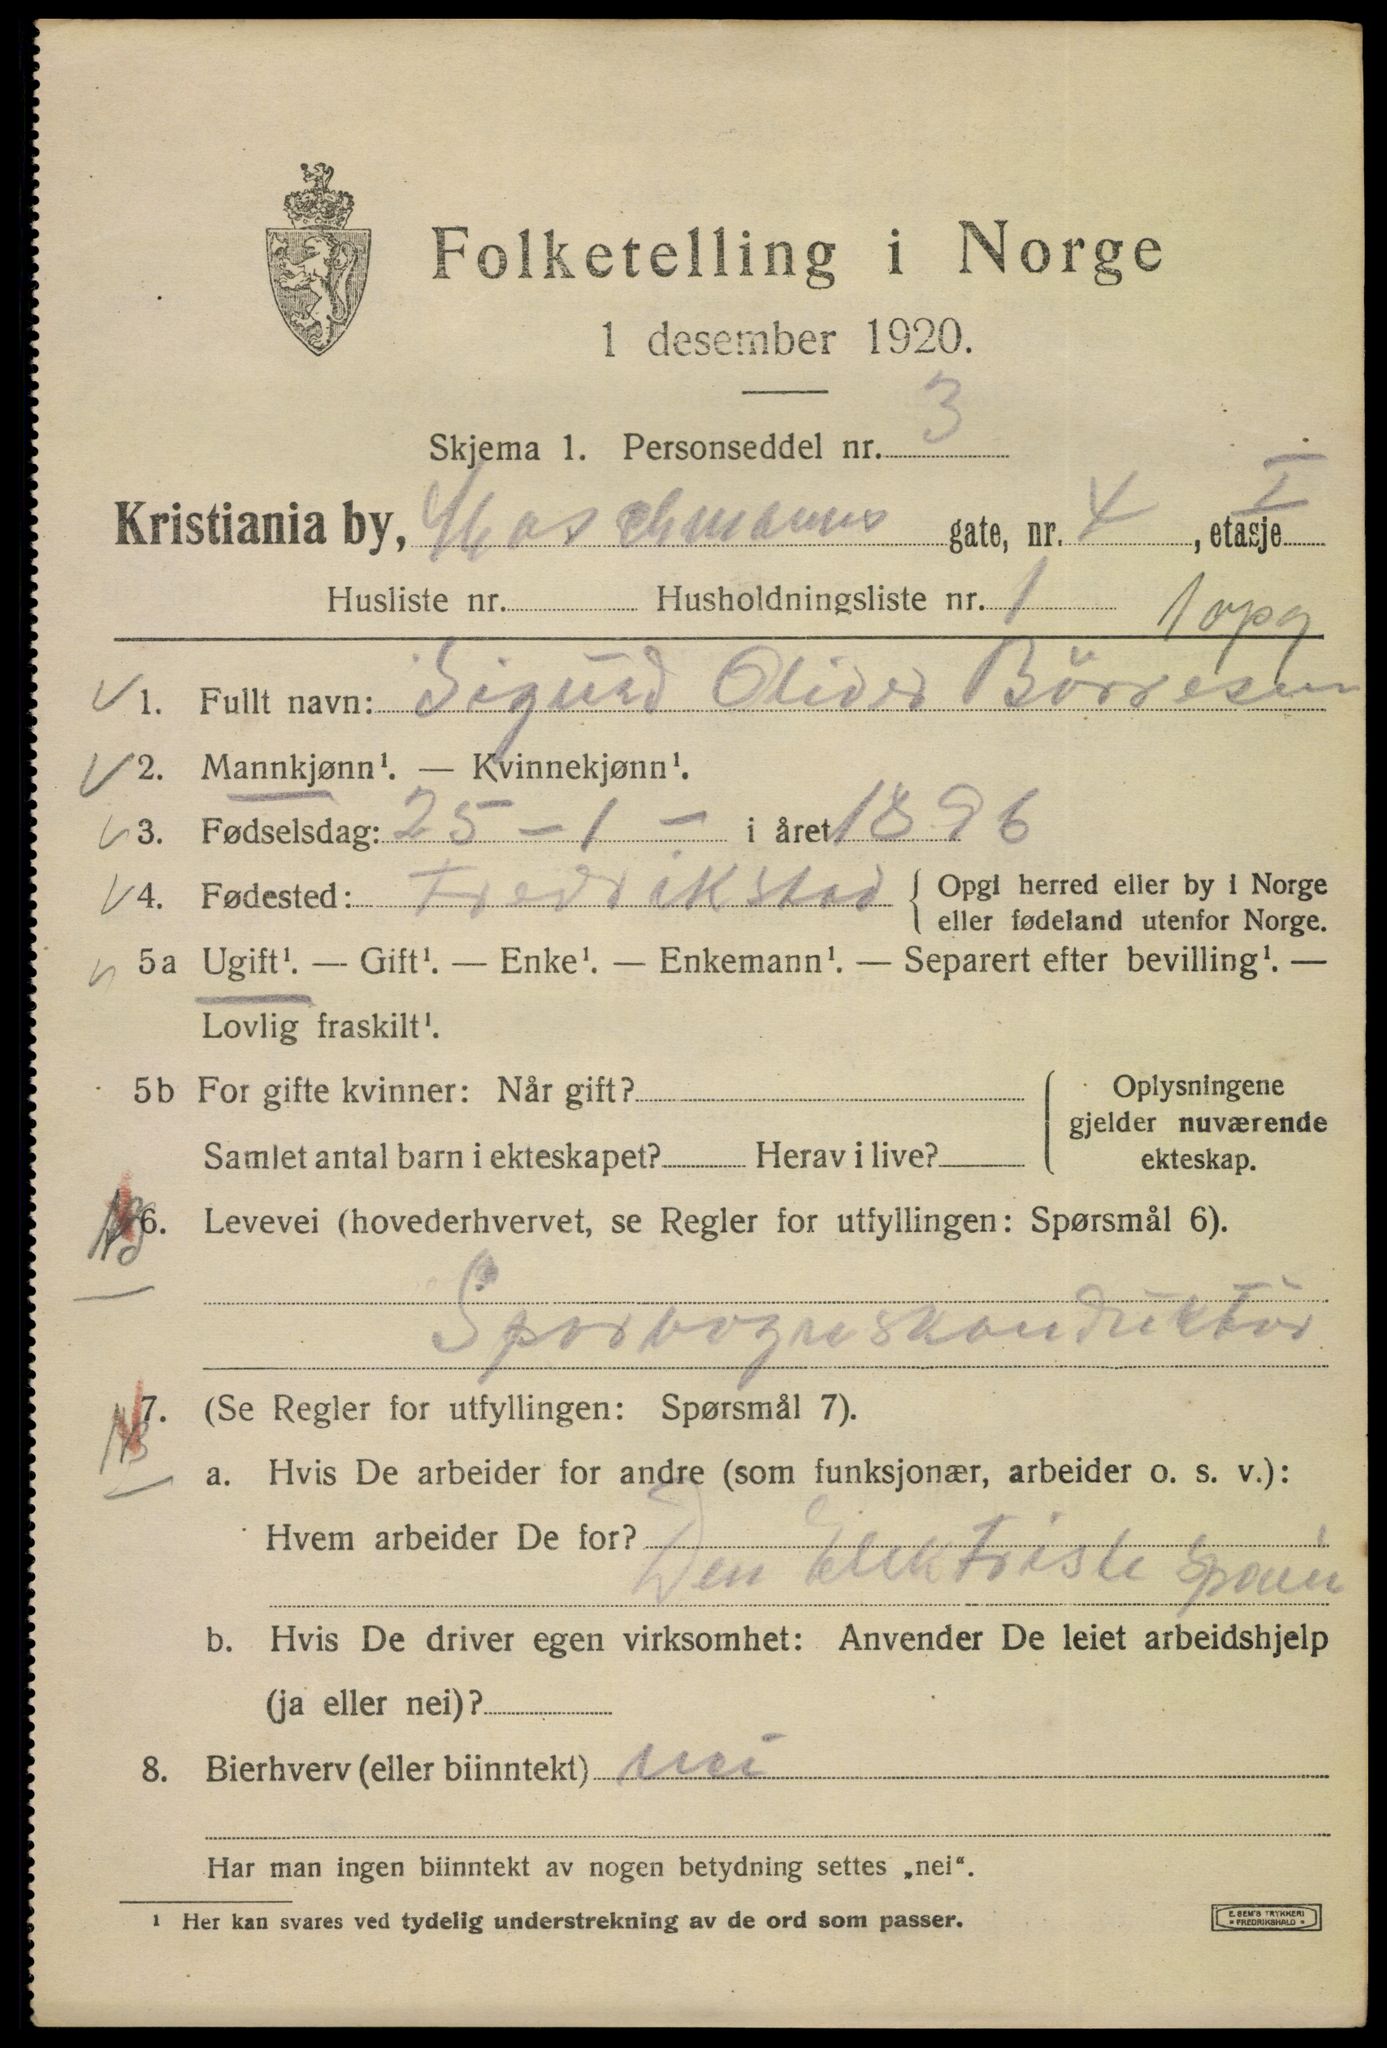 Folketelling i Norge
1 desember 1920.
Skjema 1. Personseddel nr. 3
Kristiania by, Maschmanns gate, nr. 4, etasje I
Husliste nr. Husholdningsliste nr. 1 1 opg
1. Fullt navn: Sigurd Oliver Börresen
2. Mannkjønn¹. — Kvinnekjønn¹.
3. Fødselsdag: 25 – 1 – i året 1896
4. Fødested: Fredrikstad { Opgi herred eller by i Norge
eller fødeland utenfor Norge.
5a Ugift¹. — Gift¹. — Enke¹. — Enkemann¹. — Separert efter bevilling¹. —
Lovlig fraskilt¹.
5b For gifte kvinner: Når gift? Oplysningene
gjelder nuværende
Samlet antal barn i ekteskapet? Herav i live? ekteskap.
NB 6. Levevei (hovederhvervet, se Regler for utfyllingen: Spørsmål 6).
Sporvogneskonduktör
NB 7. (Se Regler for utfyllingen: Spørsmål 7).
a. Hvis De arbeider for andre (som funksjonær, arbeider o. s. v.):
Hvem arbeider De for?
Den Elektriske
b. Hvis De driver egen virksomhet: Anvender De leiet arbeidshjelp
(ja eller nei)?
8. Bierhverv (eller biinntekt) nei
Har man ingen biinntekt av nogen betydning settes „nei“.
¹ Her kan svares ved tydelig understrekning av de ord som passer.
E. SEM'S TRYKKERI
• FREDRIKSHALD •